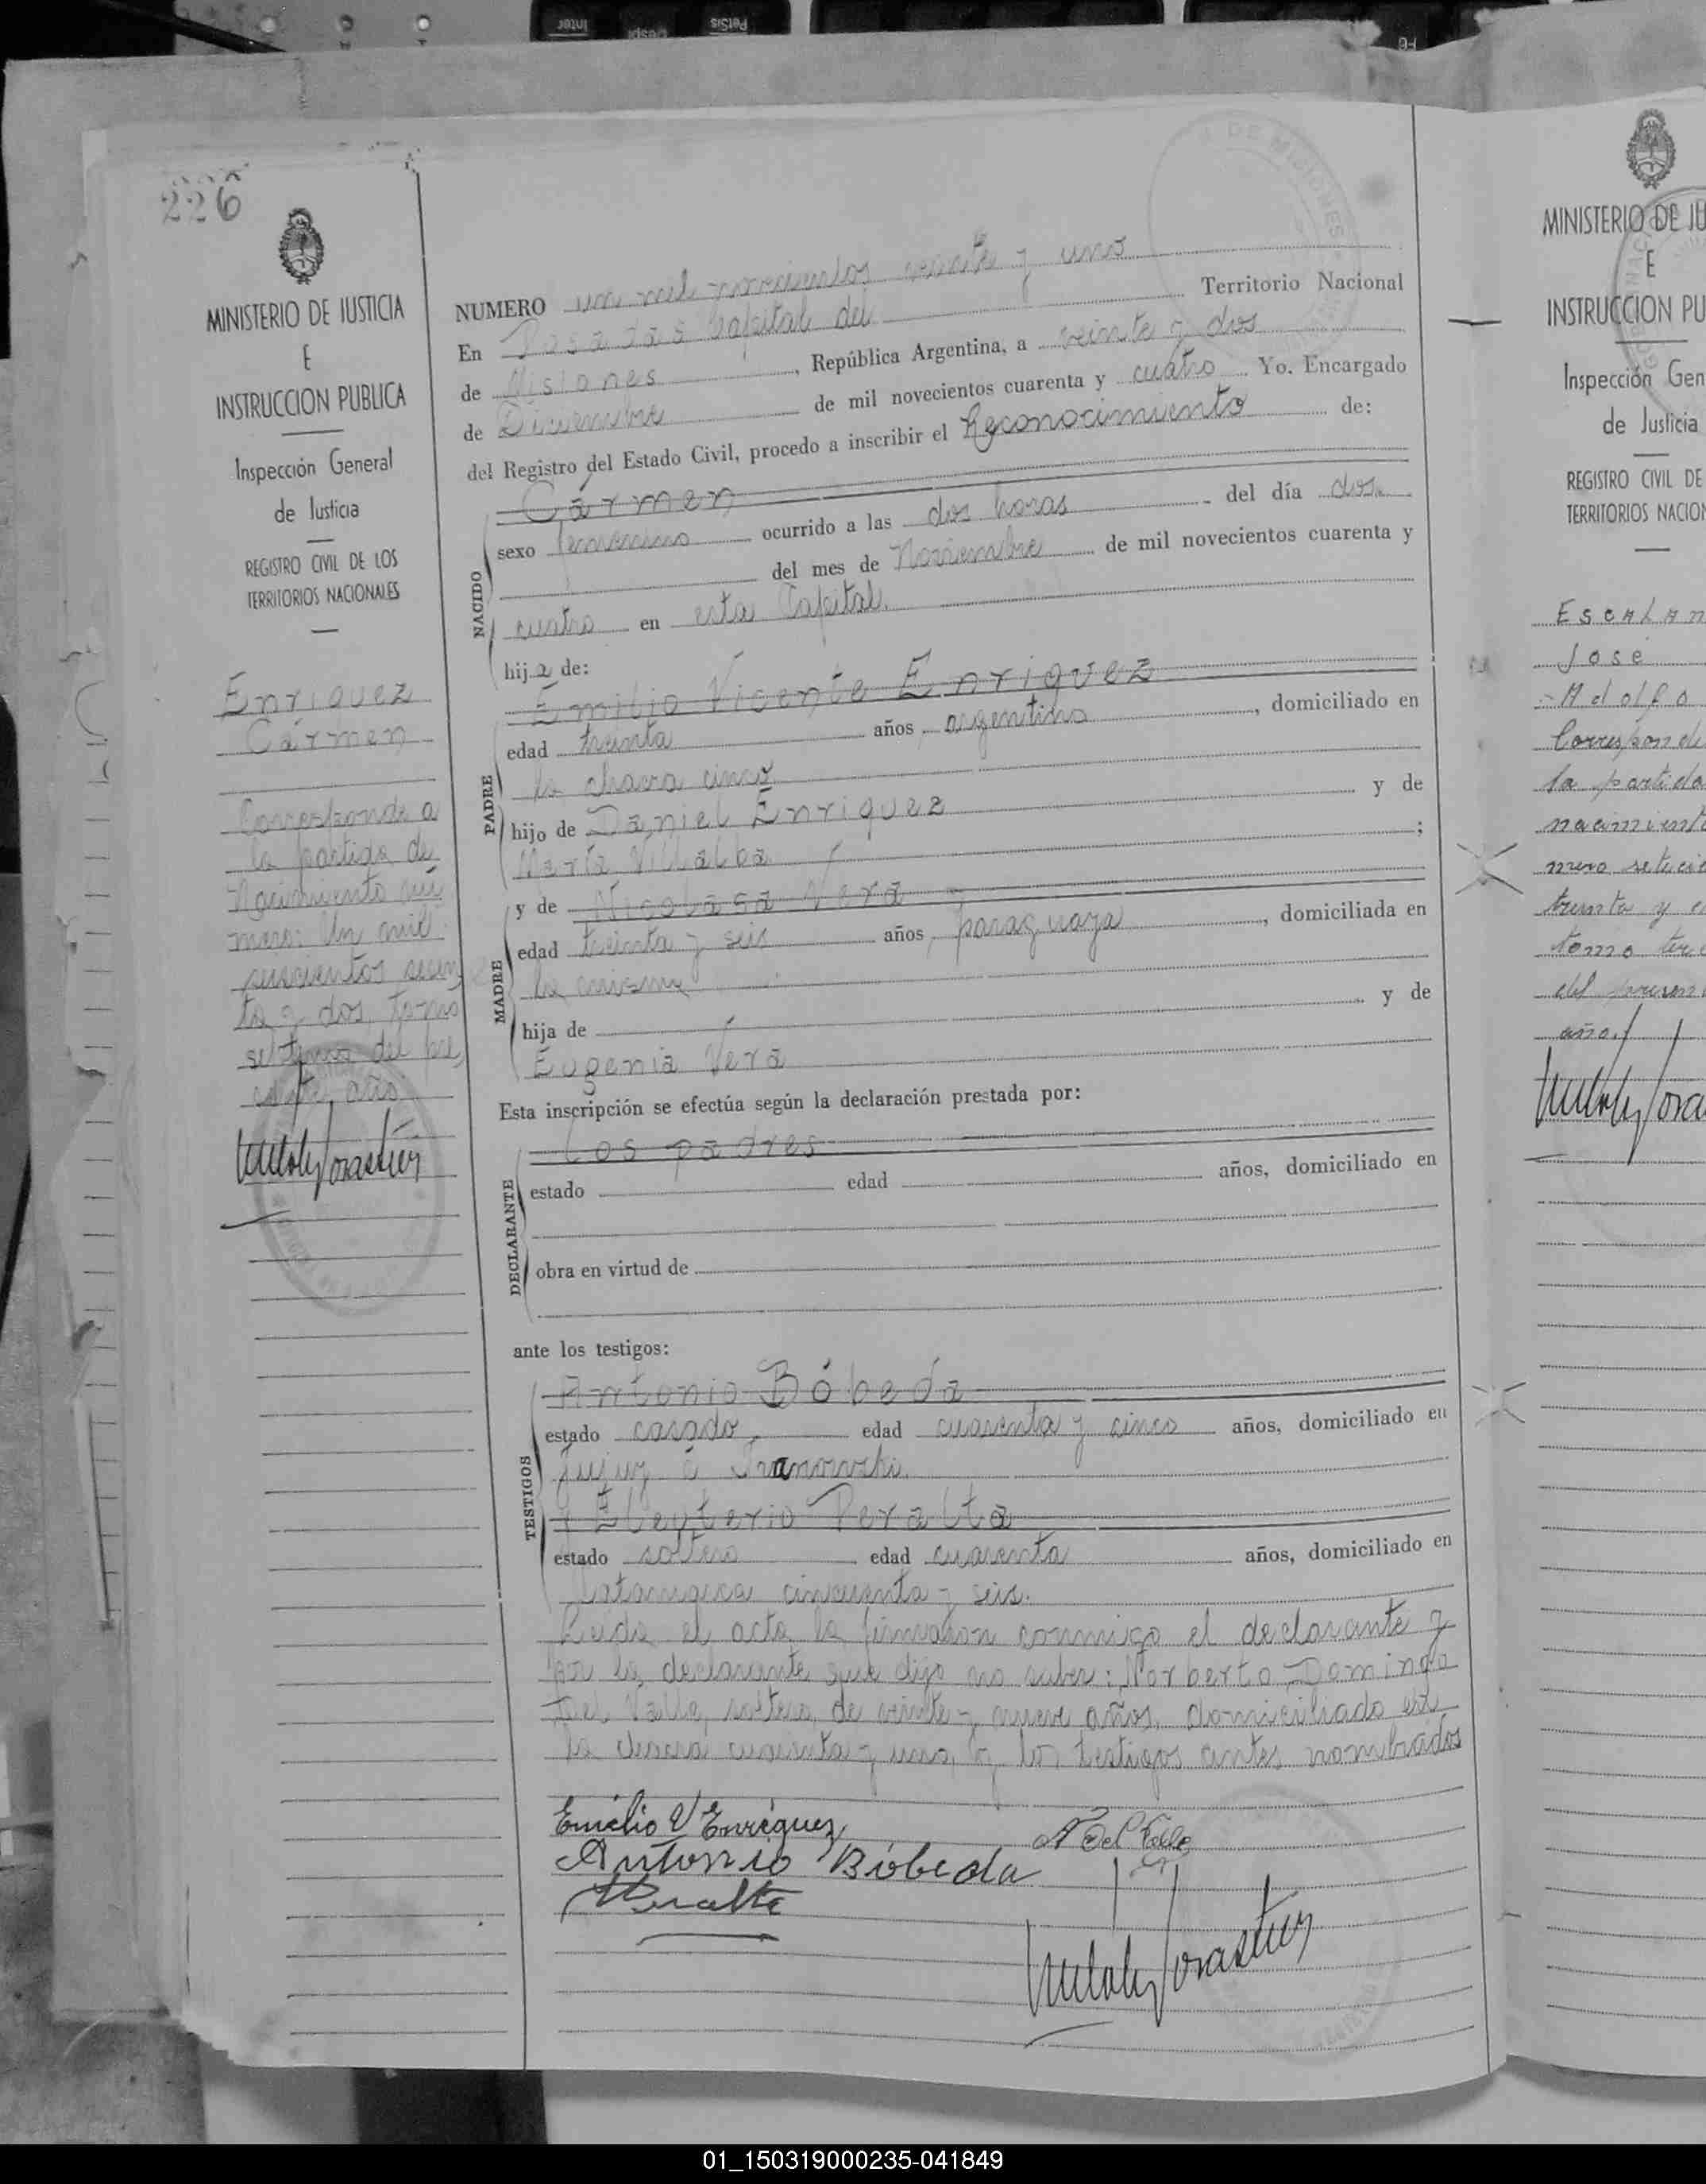 226
MINISTERIO DE JUSTICIA
E
INSTRUCCION PUBLICA
Inspección General
de Justicia
REGISTRO CIVIL DE LOS
TERRITORIOS NACIONALES
Enriquez
Cármen
Corresponde a
la partida de
Nacimiento nú
mero: Un mil
seiscientos
ta y dos, tomo
septimo del pre
sente año
NUMERO un mil novecientos veinte y uno
En Posadas Capital del Territorio Nacional
de Misiones, República Argentina, a veinte y dos
de Diciembre de mil novecientos cuarenta y cuatro Yo. Encargado
del Registro del Estado Civil, procedo a inscribir el Reconocimiento de:
NACIDO
Cármen
sexo femenino ocurrido a las dos horas del día dos
del mes de Noviembre de mil novecientos cuarenta y
cuatro en esta Capital.
hija de:
PADRE
Emilio Vicente Enriquez
edad treinta años, argentino, domiciliado en
la chacra cinco
hijo de Daniel Enriquez y de
María Villalba;
MADRE
y de Nicolasa Vera
edad treinta y seis años, paraguaya, domiciliada en
la misma
hija de y de
Eugenia Vera
Esta inscripción se efectúa según la declaración prestada por:
DECLARANTE
Los padres
estado edad años, domiciliado en
obra en virtud de
ante los testigos:
TESTIGOS
Antonio Bóbeda
estado casado, edad cuarenta y cinco años, domiciliado en
Jujuy é Ivanowski.
y Eleuterio Peralta
estado soltero edad cuarenta años, domiciliado en
Catamarca cincuenta y seis.
Leída el acta la firmaron conmigo el declarante y
por la declarante que dijo no saber: Norberto Domingo
Del Valle, soltero, de veinte y nueve años, domiciliado en
la chacra cuarenta y uno, y los testigos antes nombrados
Emilio V Enriquez
N Del Valle
Antonio Bóbeda
Peralta
MINISTERIO DE JU
E
INSTRUCCION PU
Inspección Gen
de Justicia
REGISTRO CIVIL DE
TERRITORIOS NACION
Escalan
José
Adolfo
Corresponde
la partida
nacimiento
mero setecie
treinta y
tomo terc
del presen
año.
01_150319000235-041849